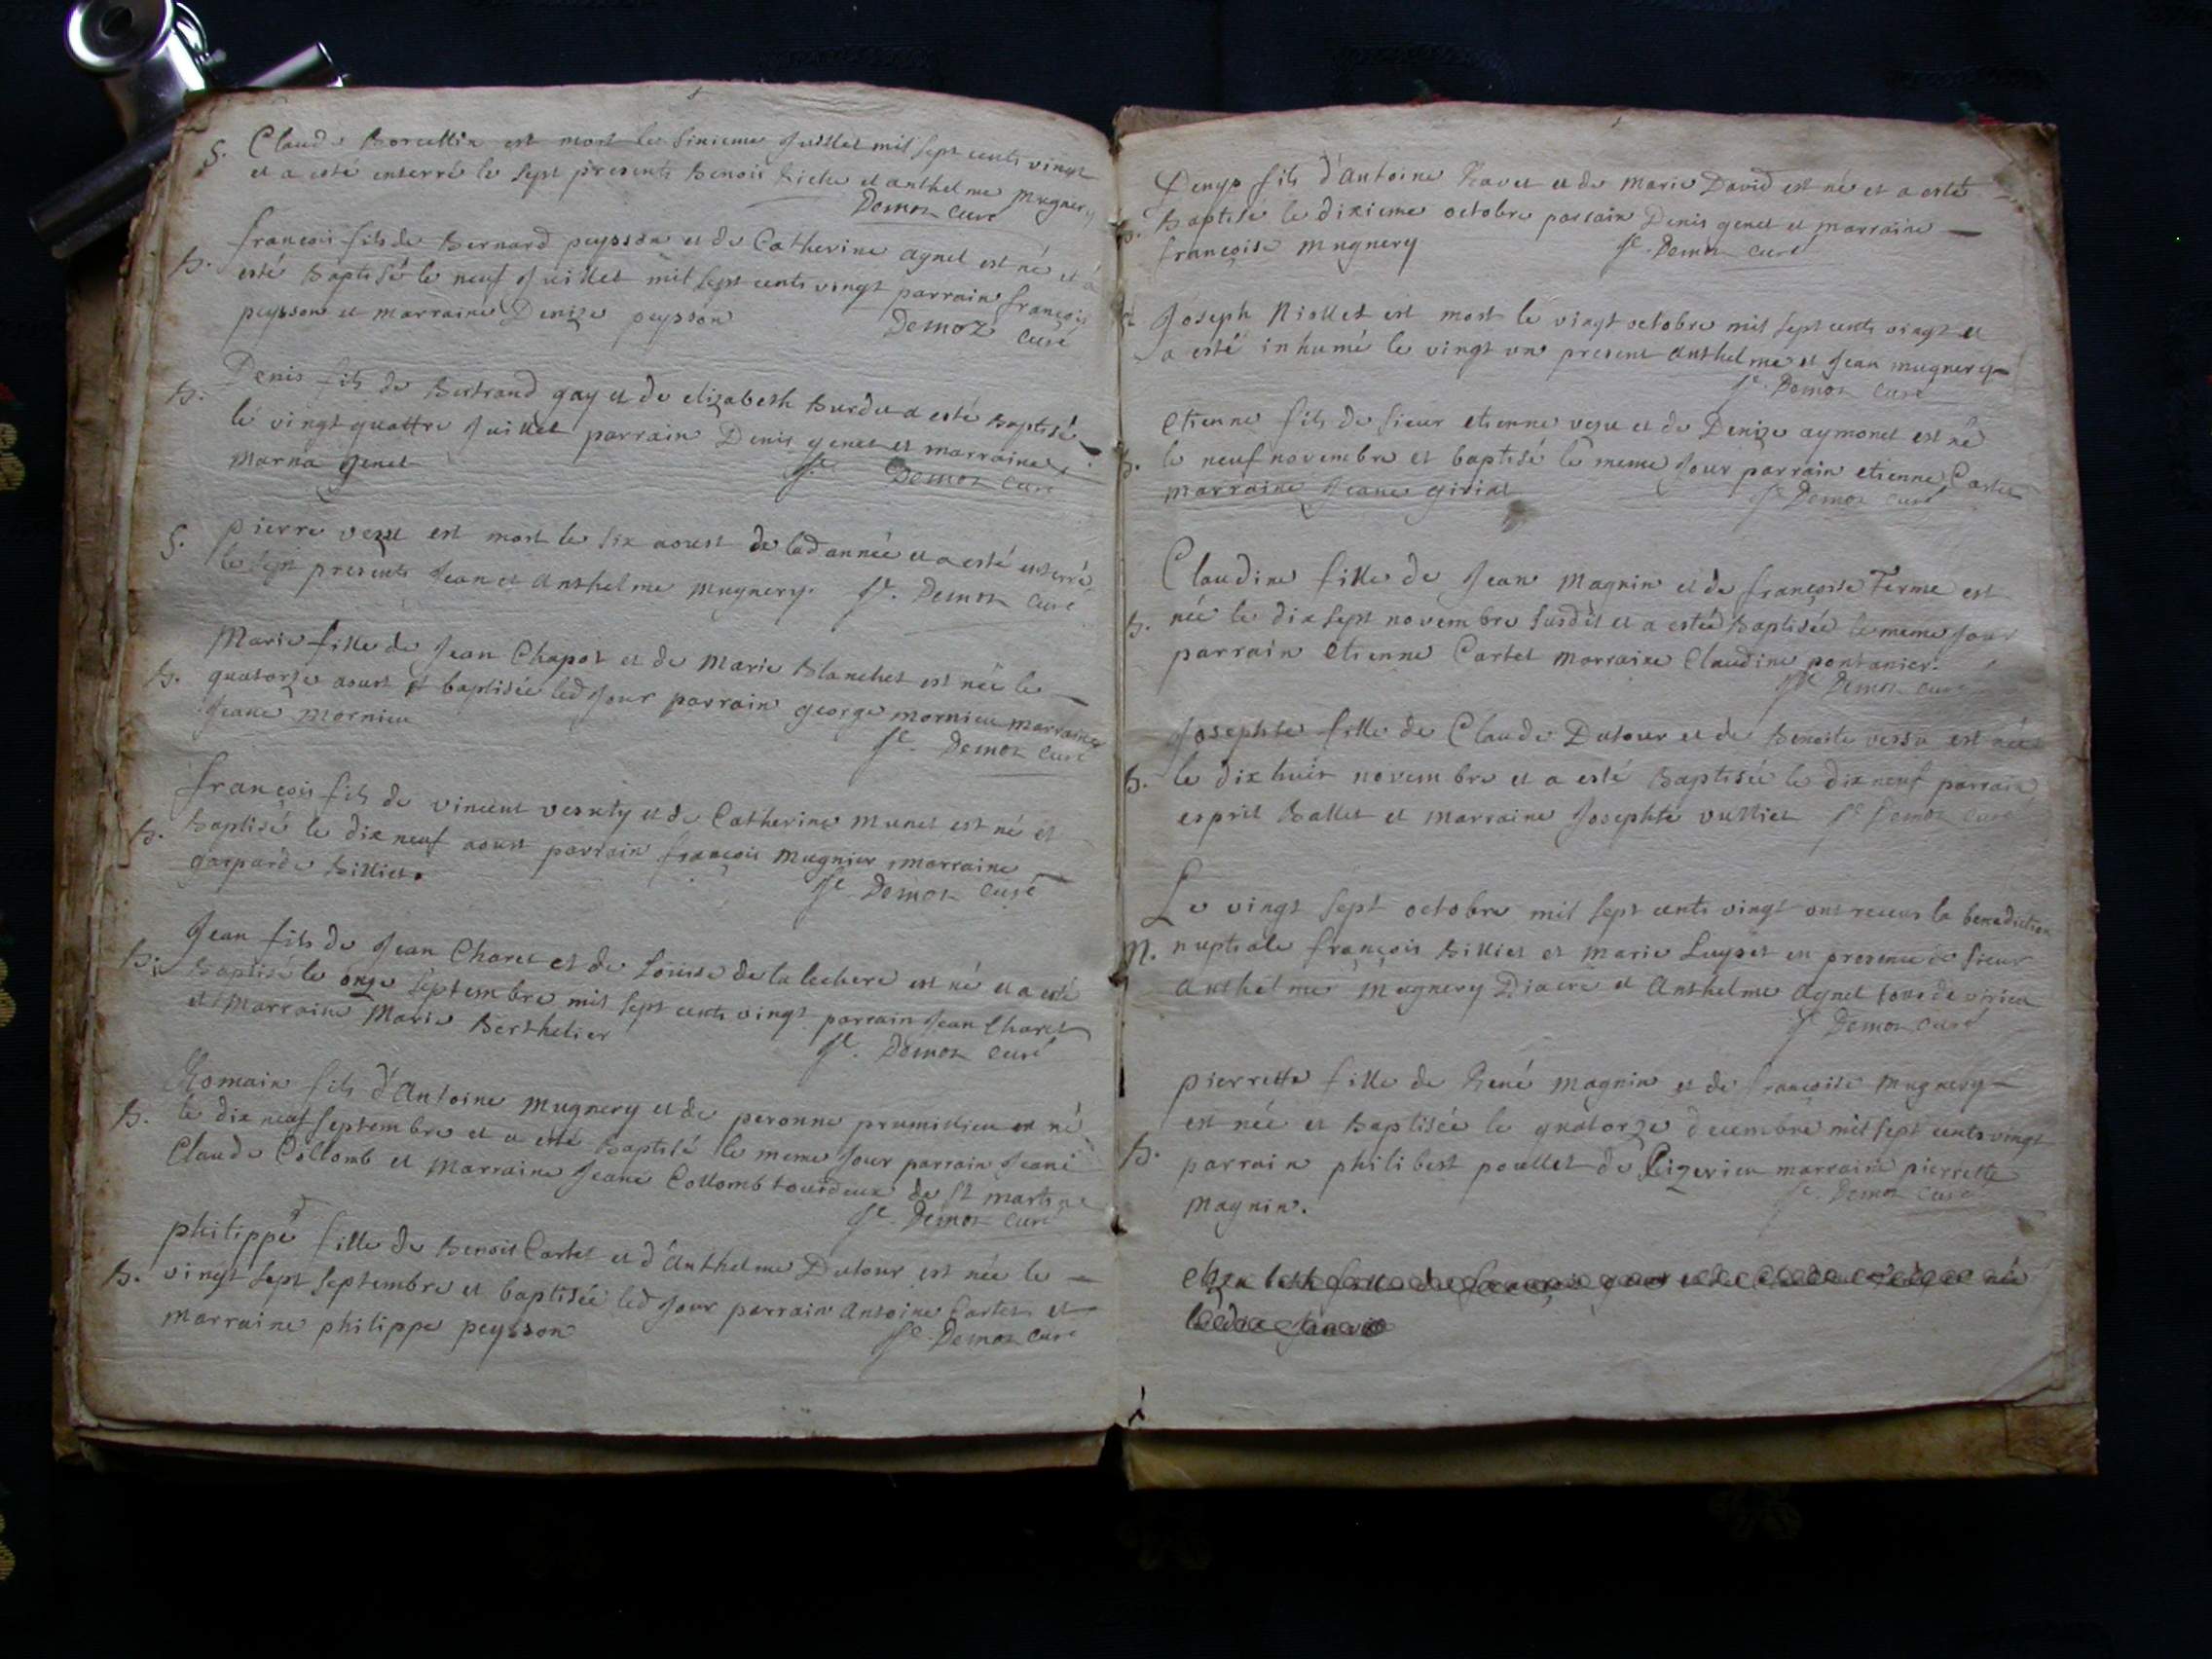 S. Claude Borcellin est mort le sixieme Juillet mil sept cents vingt
et a esté enterré le sept presents Benois et anthelme mugnery
Demoz curé
françois fils de Bernard peysson et de Catherine aynel est né et a
B. esté Baptisé le neuf Juillet mil sept cents vingt parrain françois
peysson et marraine Denize peysson Demoz curé
Denis fils de Bertrand gay et de elizabeth Burdu a esté Baptisé
B. le vingt quattre Juillet parrain Denis genet et marraine
marna genet Demoz curé
S. pierre vezu est mort le six aoust de lad année et a esté enterré
le sept presents Jean et Anthelme mugnery. Demoz curé
Marie fille de Jean Chapot et de Marie Blanchet est née le
B. quatorze aoust et baptisée led Jour parrain george mornieu marraine
Jeane mornieu Demoz curé
françois fils de vincent et de Catherine munet est né et
B. Baptisé le dix neuf aoust parrain françois mugnier marraine
gasparde Billiet. Demoz curé
Jean fils de Jean Charet et de Louise de la lechere est né et a esté
B. Baptisé le onze septembre mil sept cents vingt parrain Jean Charet
et marraine Marie Berthelier Demoz curé
Romain fils d'Antoine mugnery et de peronne prumillieu est né
B. le dix neuf septembre et a esté Baptisé le meme Jour parrain
Claude Collomb et marraine Jeane Collomb tousdeux de St martin
Demoz curé
philippe fille de Benoit Cartet et d'Anthelme Dutour est née le
B. vingt sept septembre et baptisée led Jour parrain Antoine Cartet et
marraine philippe peysson Demoz curé
Denys fils d'Antoine Ravet et de Marie David est né et a esté
B. Baptisé le dixieme octobre parrain Denis genet et marraine
françoise mugnery Demoz curé
Joseph Niollet est mort le vingt octobre mil sept cents vingt et
a esté inhumé le vingt un present Anthelme et Jean mugnery
Demoz curé
Etienne fils de sieur etienne vezu et de Denize aymonet est né
B. le neuf novembre et baptisé le meme Jour parrain etienne Cartet
marraine Jeane Demoz curé
Claudine fille de Jean Magnin et de françoise Ferme est
B. née le dix sept novembre susdit et a esté Baptisée le meme Jour
parrain Etienne Cartet Marraine Claudine pontanier.
Demoz curé
Josephte fille de Claude Dutour et de Benoite vessu est née
B. le dix huit novembre et a esté Baptisée le dix neuf parrain
esprit Ballet et marraine Josephte vulliet Demoz curé
Le vingt sept octobre mil sept cents vingt ont receus la benediction
M. nuptiale françois Billiet et marie Luyset en presence de sieur
Anthelme Mugnery Diacre et Anthelme Aynel tous de virieu
Demoz curé
pierrette fille de René Magnin et de françoise mugnery
est née et Baptisée le quatorze decembre mil sept cents vingt
B. parrain philibert poullet de Ceizerieu marraine pierrette
magnin. Demoz curé